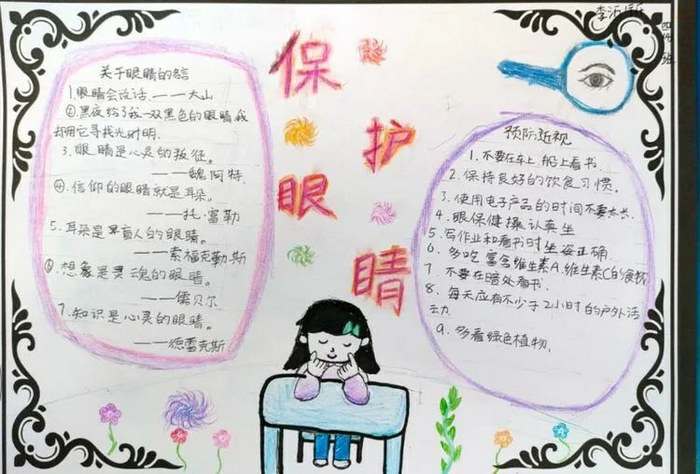 保
护
眼
睛
关于眼睛的名言
1.眼睛会说话.——大山
②黑夜给了我一双黑色的眼睛,我
却用它寻找光明.
3.眼睛是心灵的叛徒。
——魏阿特.
④.信仰的眼睛就是耳朵.
——托·富勒
5.耳朵是盲人的眼睛。
——索福克勒斯
⑥.想象是灵魂的眼睛。
——儒贝尔
7.知识是心灵的眼睛。
——德雷克斯
预防近视
1.不要在车上船上看书.
2.保持良好的饮食习惯。
3.使用电子产品的时间不要太长.
4.眼保健操认真坐
5.写作业和看书时坐姿正确.
6.多吃富含维生素A.维生素C的食物
7.不要在暗处看书.
8.每天应有不少于2小时的户外活
动
9.多看绿色植物.